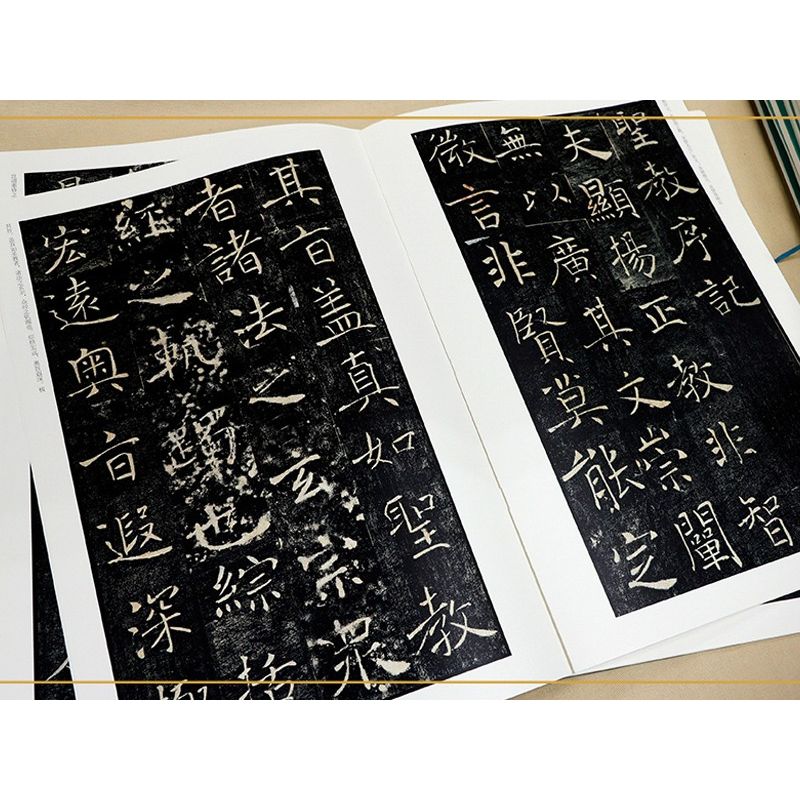 聖教序記
夫顯揚正教非智
無以廣其文崇闡
微言非賢莫能定
其旨蓋真如聖教
者諸法之玄宗眾
經之軌躅也綜括
宏遠奧旨遐深